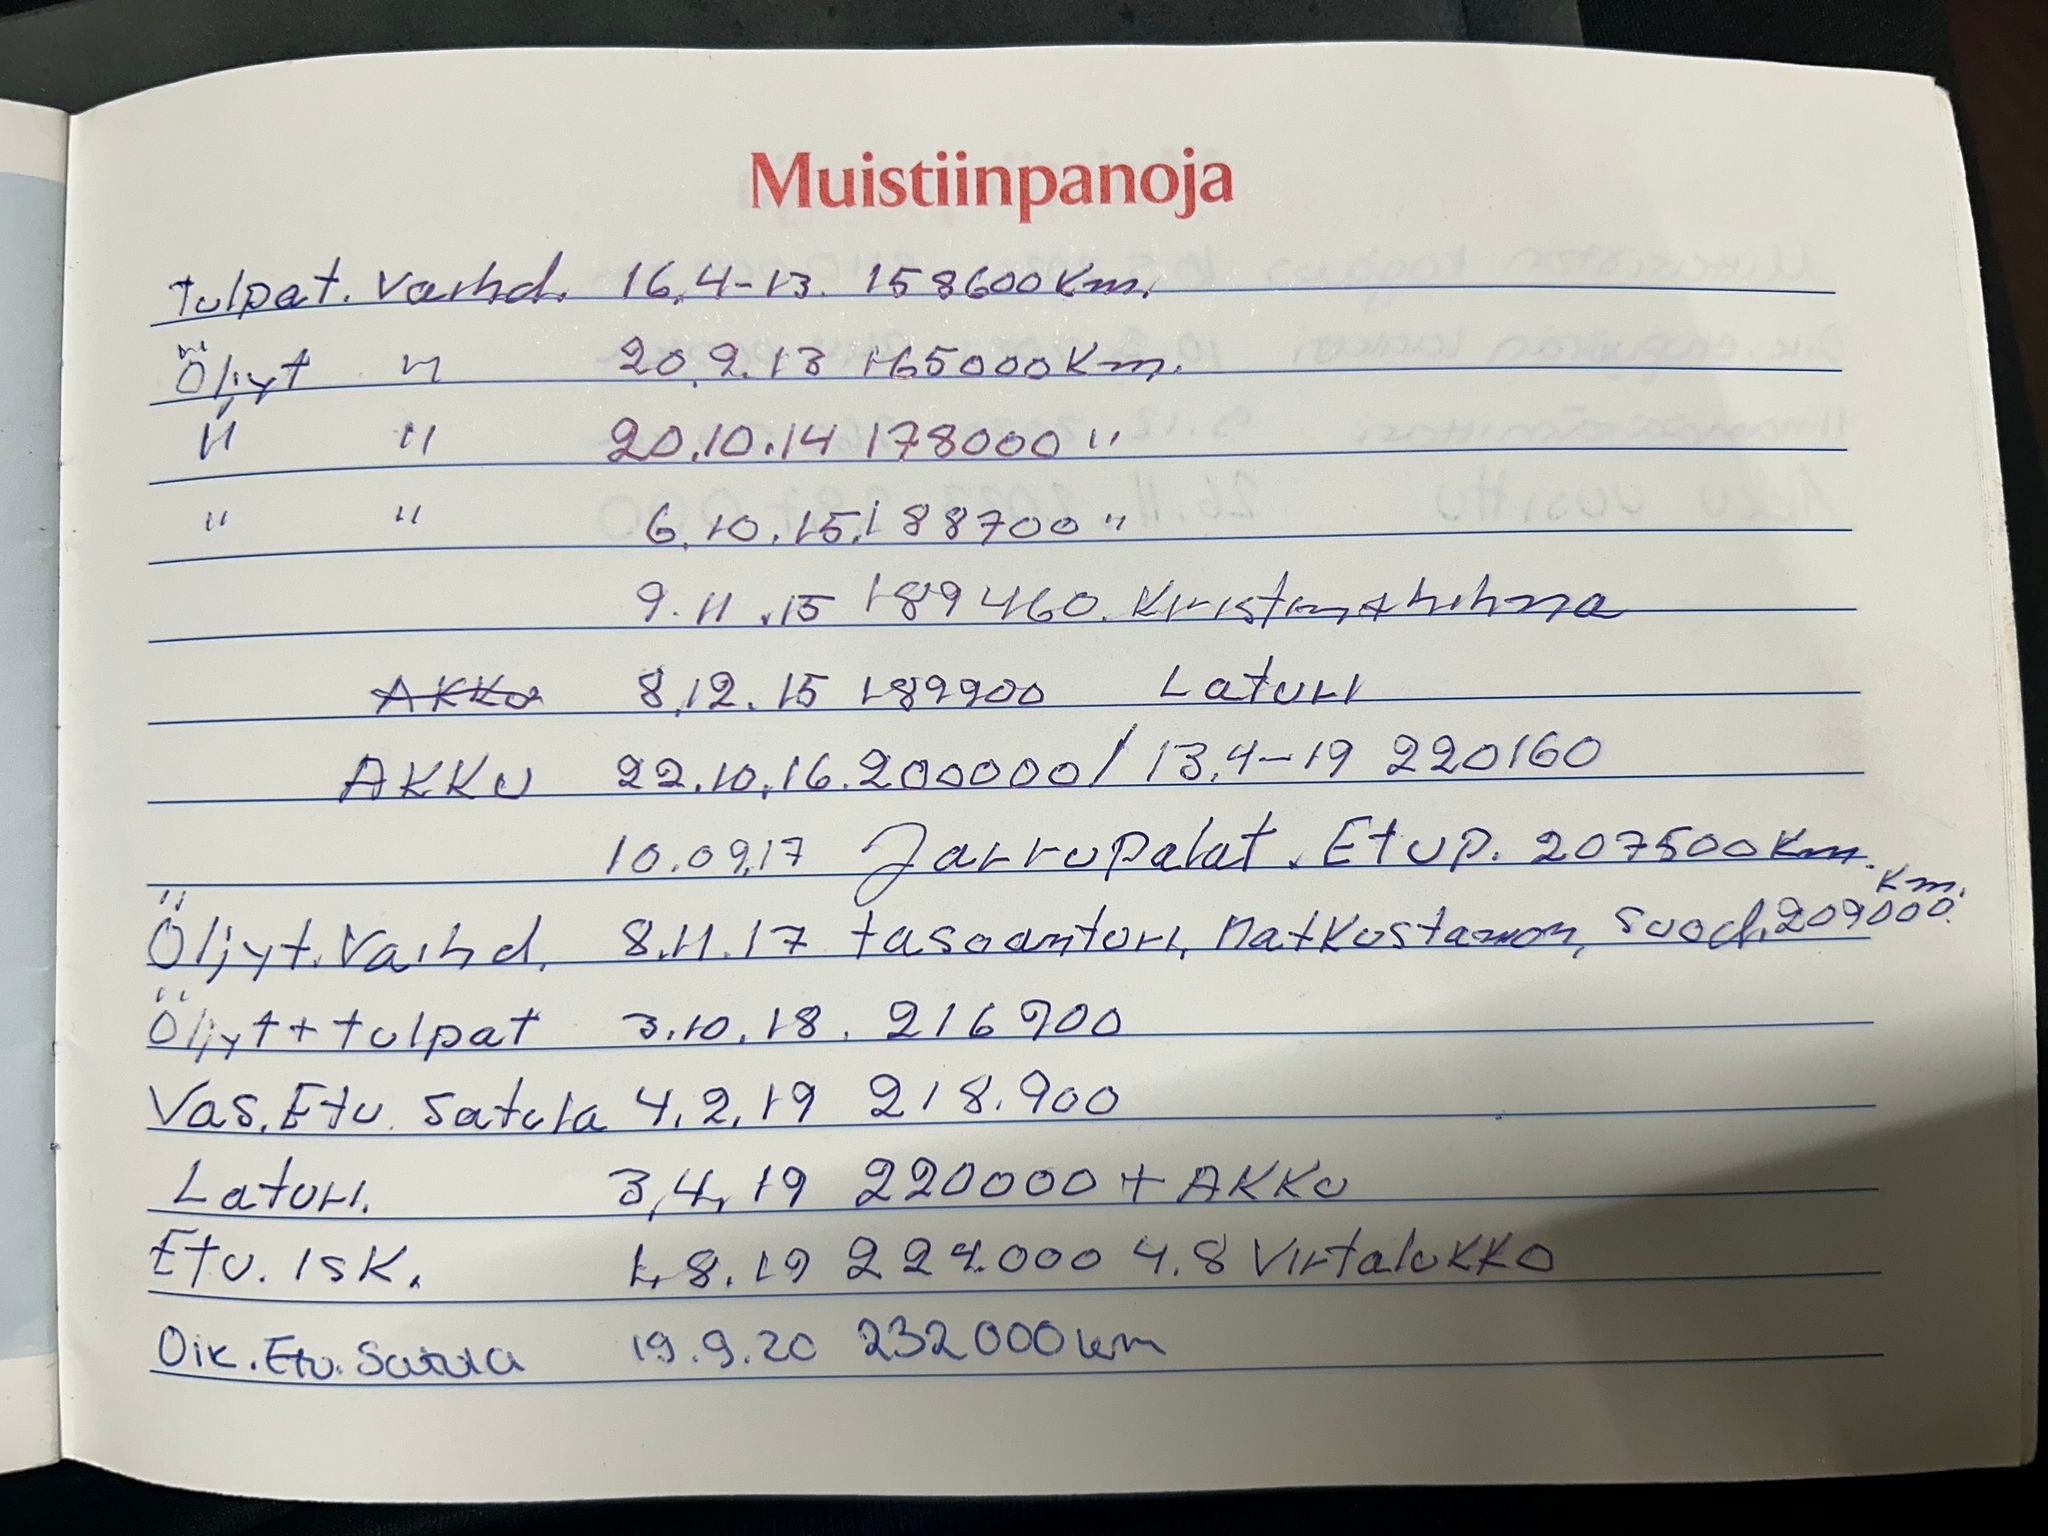 Muistiinpanoja
Tulpat. Vaihd. 16.4-13. 158600 Km.
Öljyt " 20.9.13 165000 Km.
" " 20.10.14 178000 "
" " 6.10.15. 188700 "
9.11.15 189460.
AKKU 8.12.15 189900 Laturi
AKKU 22.10.16. 200000 / 13.4-19 220160
10.09.17 Jarrupalat. Etup. 207500 Km.
Öljyt. Vaihd. 8.11.17 tasoanturi, matkustamon, suod. 209000 km.
Öljyt + tulpat 3.10.18. 216900
Vas. Etu. Satula 4.2.19 218.900
Laturi. 3.4.19 220000 + AKKU
Etu. Isk. 1.8.19 224.000 4.8 Virtalukko
Oik. Etu. Satula 19.9.20 232000 km